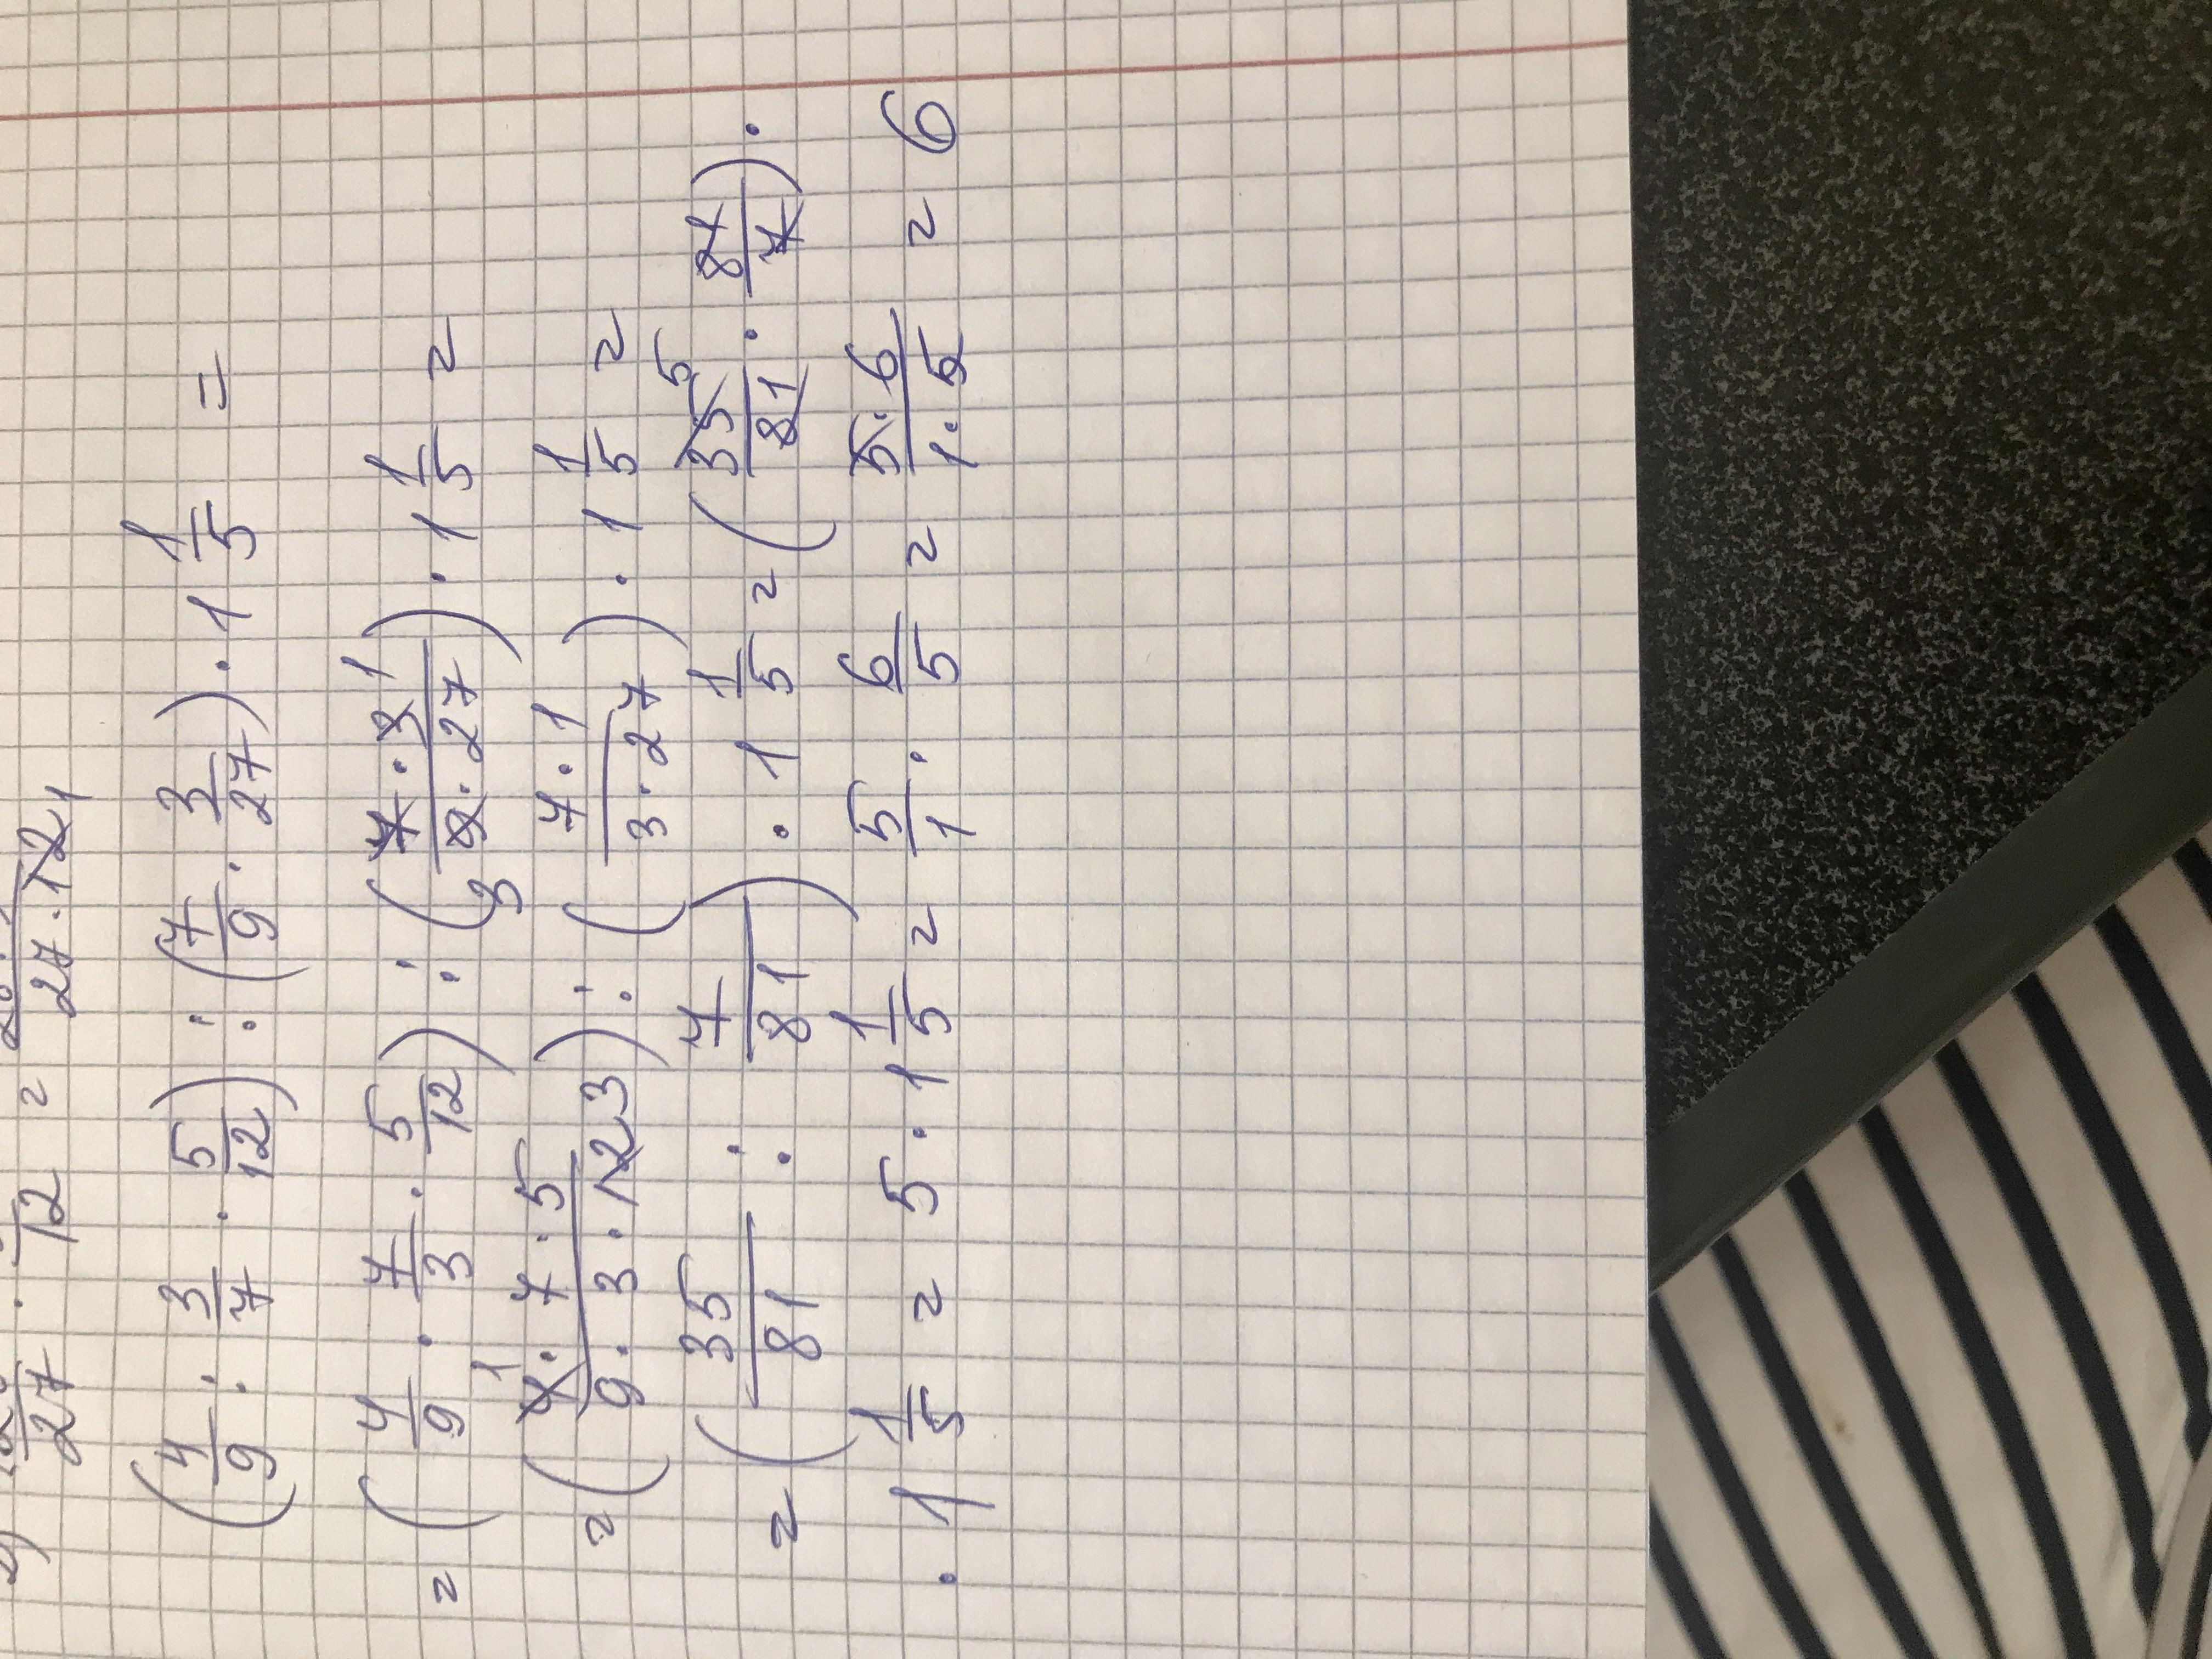 27 · 12 = 27 · 12 1
(4/9 : 3/7 · 5/12) : (7/9 · 3/27) · 1 1/5 =
= (4/9 · 7/3 · 5/12) : (7 · 3 1 / 9 3 · 27) · 1 1/5 =
= (4 1 · 7 · 5 / 9 · 3 · 12 3) : (7 · 1 / 3 · 27) · 1 1/5 =
= (35/81 : 7/81) · 1 1/5 = (35 5 / 81 · 81/7) ·
· 1 1/5 = 5 · 1 1/5 = 5/1 · 6/5 = 5 · 6 / 1 · 5 = 6